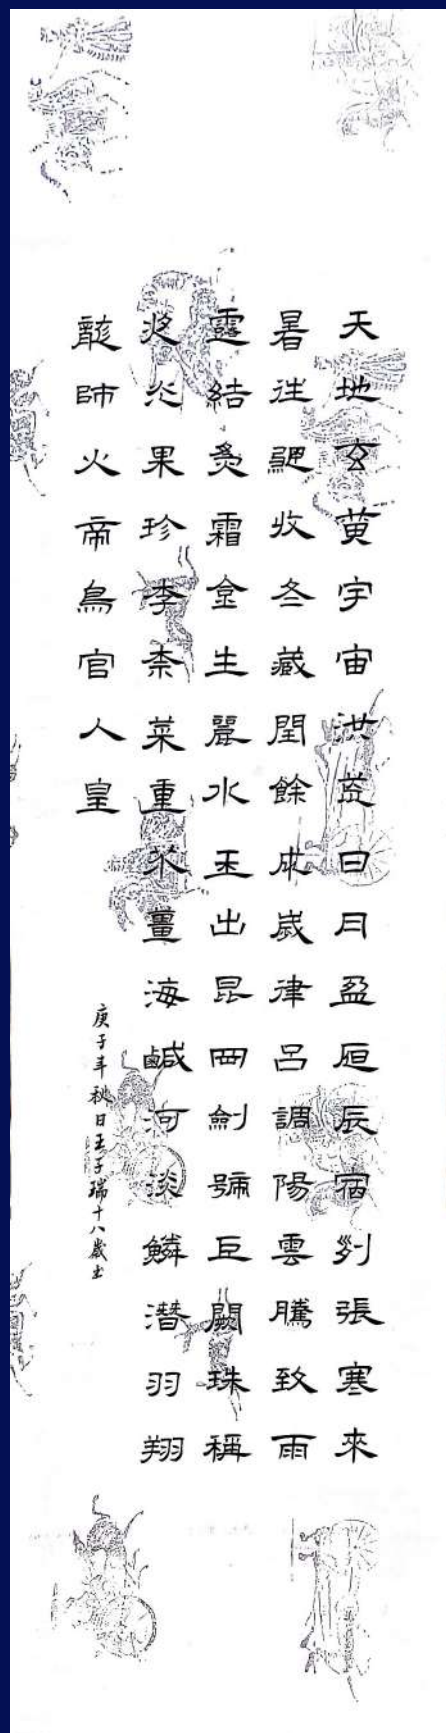 天地玄黄宇宙洪荒日月盈昃辰宿列張寒來
暑往秋收冬藏閏餘成歲律呂調陽雲騰致雨
露結為霜金生麗水玉出昆岡劍號巨闕珠稱
夜光果珍李柰菜重芥薑海鹹河淡鱗潛羽翔
龍師火帝鳥官人皇
庚子年秋日王子瑞十八歲书